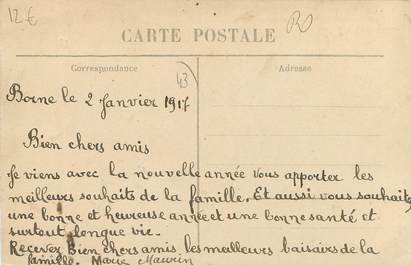 12€
RO
CARTE POSTALE
Correspondance
Adresse
43
Borne le 2 Janvier 1917
Bien chers amis
Je viens avec la nouvelle année vous apporter les
meilleurs souhaits de la famille. Et aussi vous souhaite
une bonne et heureuse année et une bonne santé et
surtout longue vie.
Recever Bien chers amis les meilleurs baisairs de la
famille. Marie Maurin